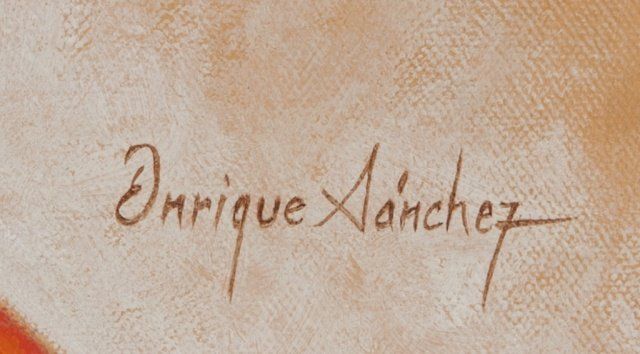 Enrique Sánchez